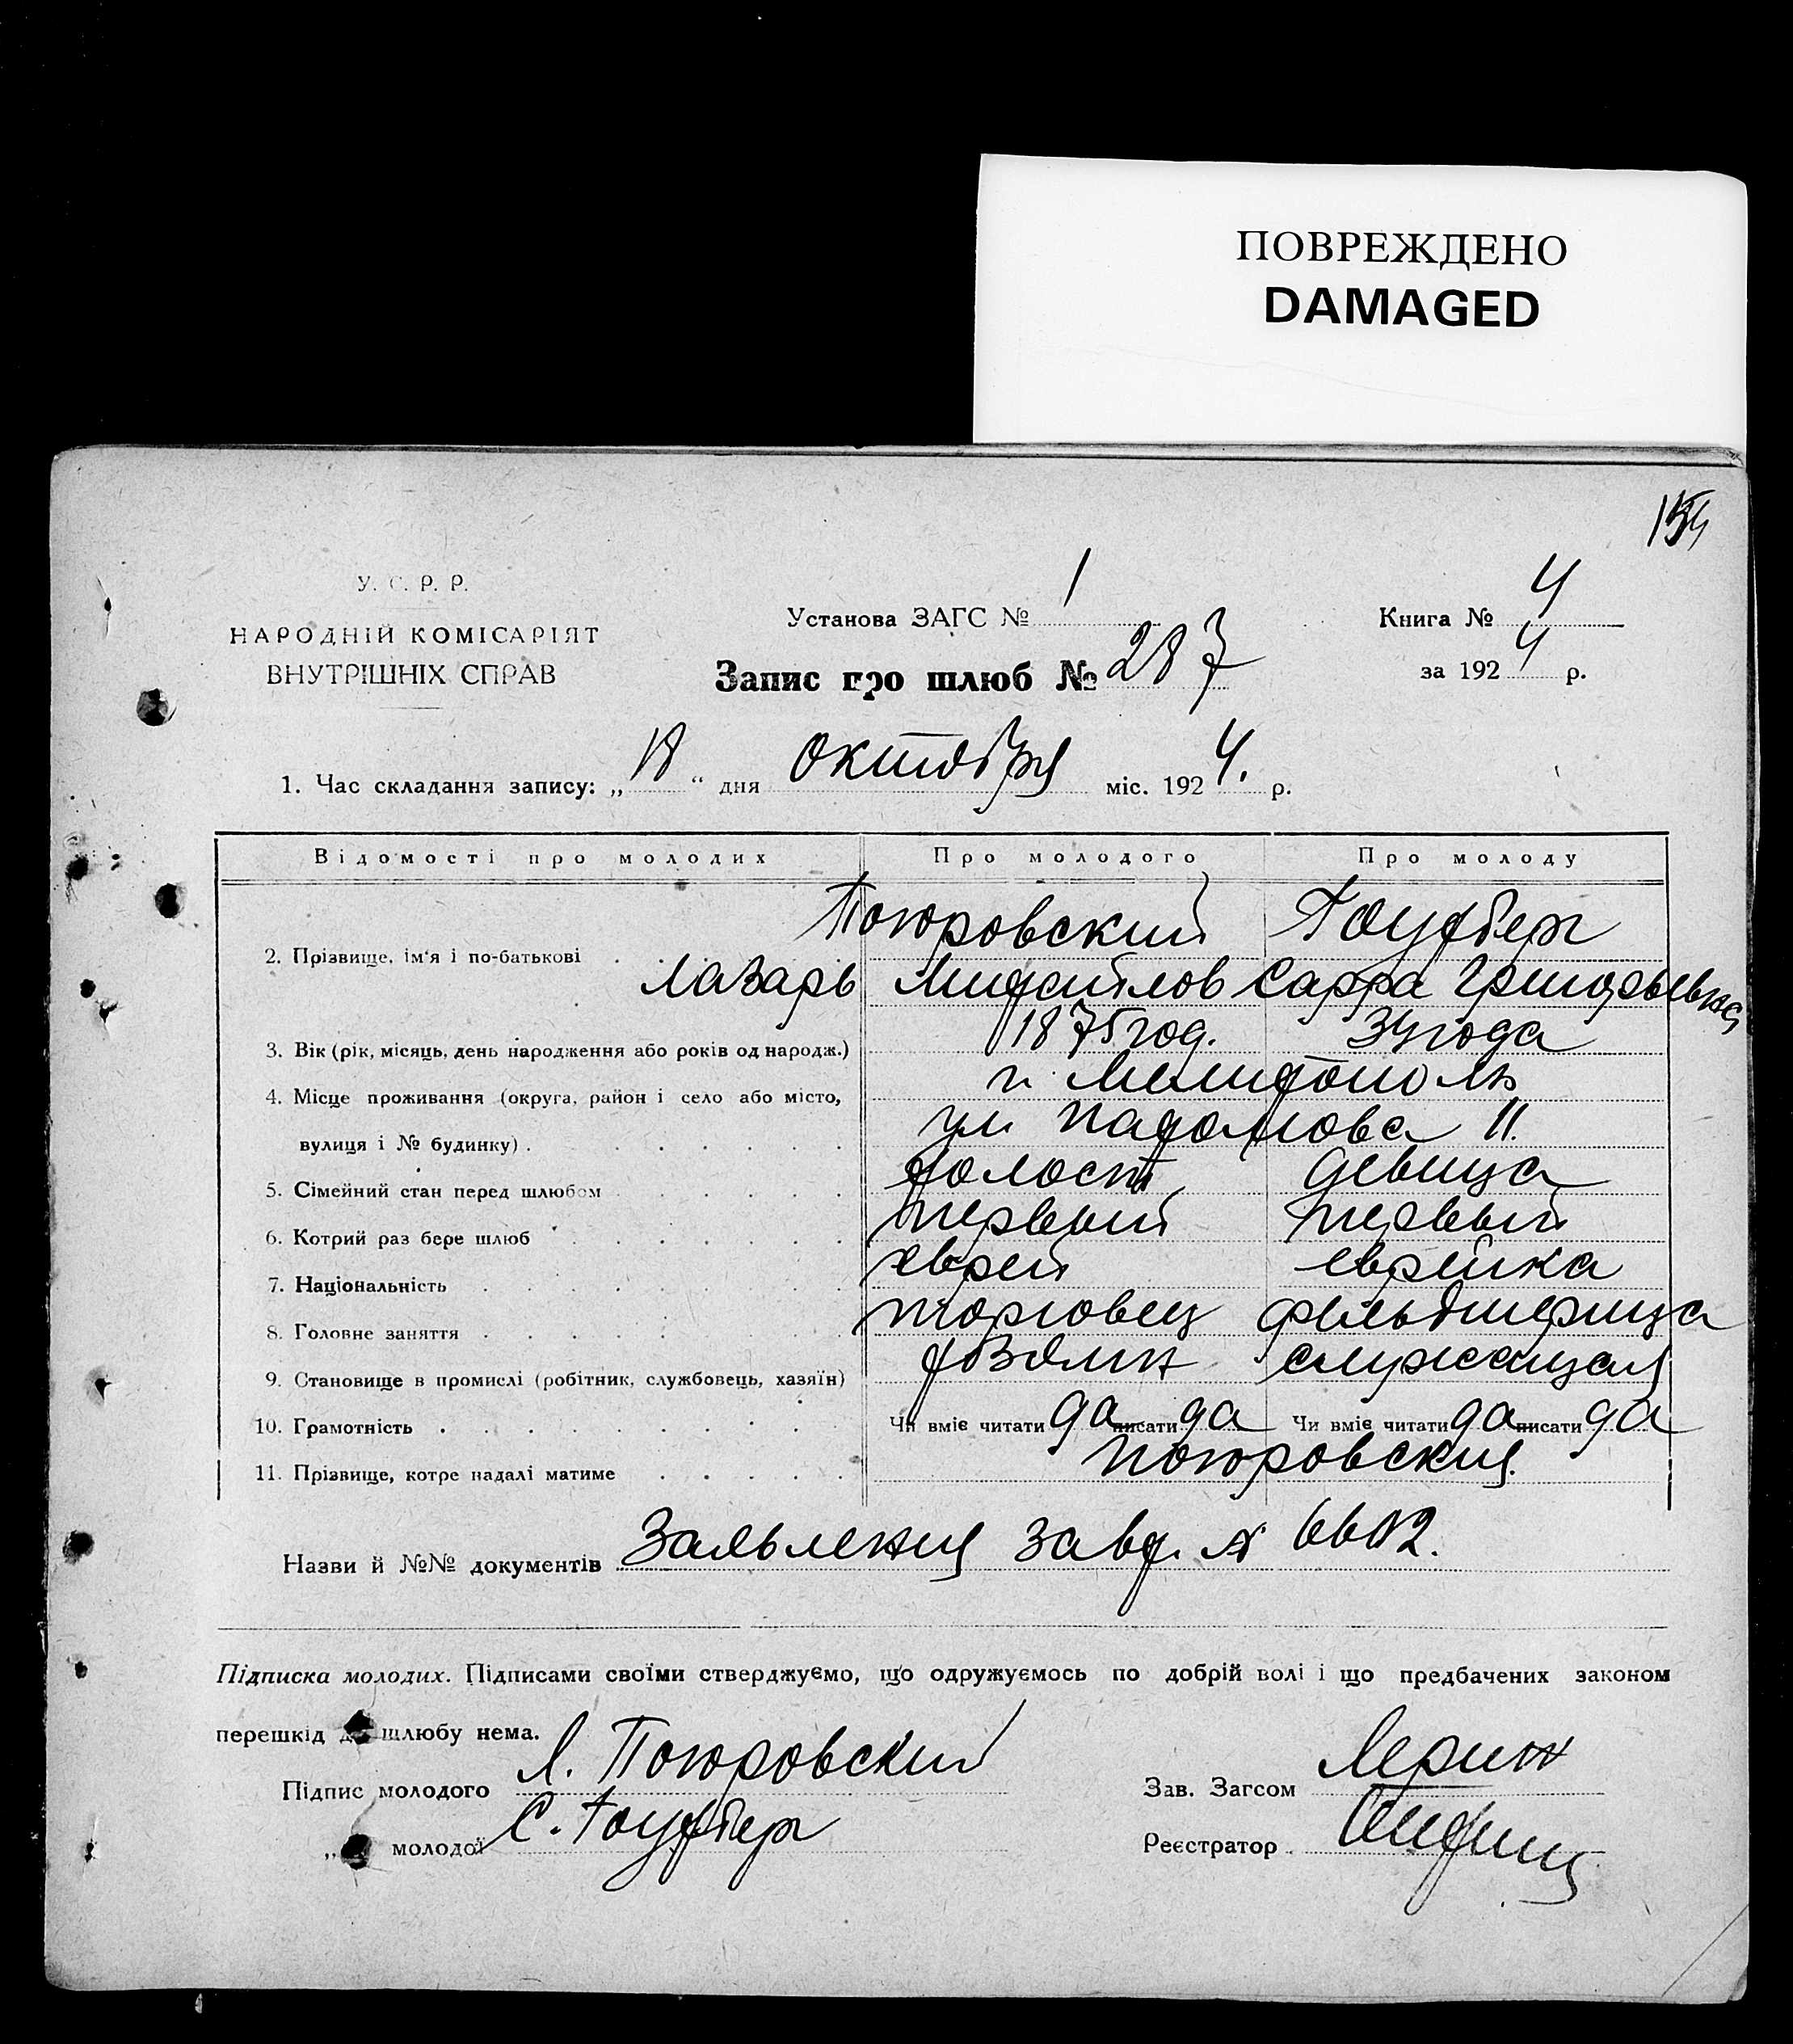 ПОВРЕЖДЕНО
DAMAGED
154
У. С. Р. Р.
НАРОДНІЙ КОМІСАРІЯТ
ВНУТРІШНІХ СПРАВ
Установа ЗАГС № 1
Книга № 4
Запис про шлюб № 287
за 1924 р.
1. Час складання запису: „18“ дня октября міс. 1924. р.
Відомості про молодих Про молодого Про молоду
Погоровский Гоуфберг
2. Прізвище, ім'я і по-батькові
Лазарь Михайлов Сарра Григорьевна
3. Вік (рік, місяць, день народження або років од народж.) 1875 год. 34 года
4. Місце проживання (округа, район і село або місто, г. Мелитополь
вулиця і № будинку) ул. 11.
5. Сімейний стан перед шлюбом холост девица
6. Котрий раз бере шлюб первый первый
7. Національність еврей еврейка
8. Головне заняття торговец фельдшерица
9. Становище в промислі (робітник, службовець, хазяїн) хозяин служащая
10. Грамотність Чи вміє читати да писати да Чи вміє читати да писати да
11. Прізвище, котре надалі матиме Погоровский
Назви й №№ документів Заявления за вх. №
Підписка молодих. Підписами своїми стверджуємо, що одружуємось по добрій волі і що предбачених законом
перешкід до шлюбу нема.
Підпис молодого Л. Погоровский
Зав. Загсом
„ молодої С. Гоуфберг
Реєстратор